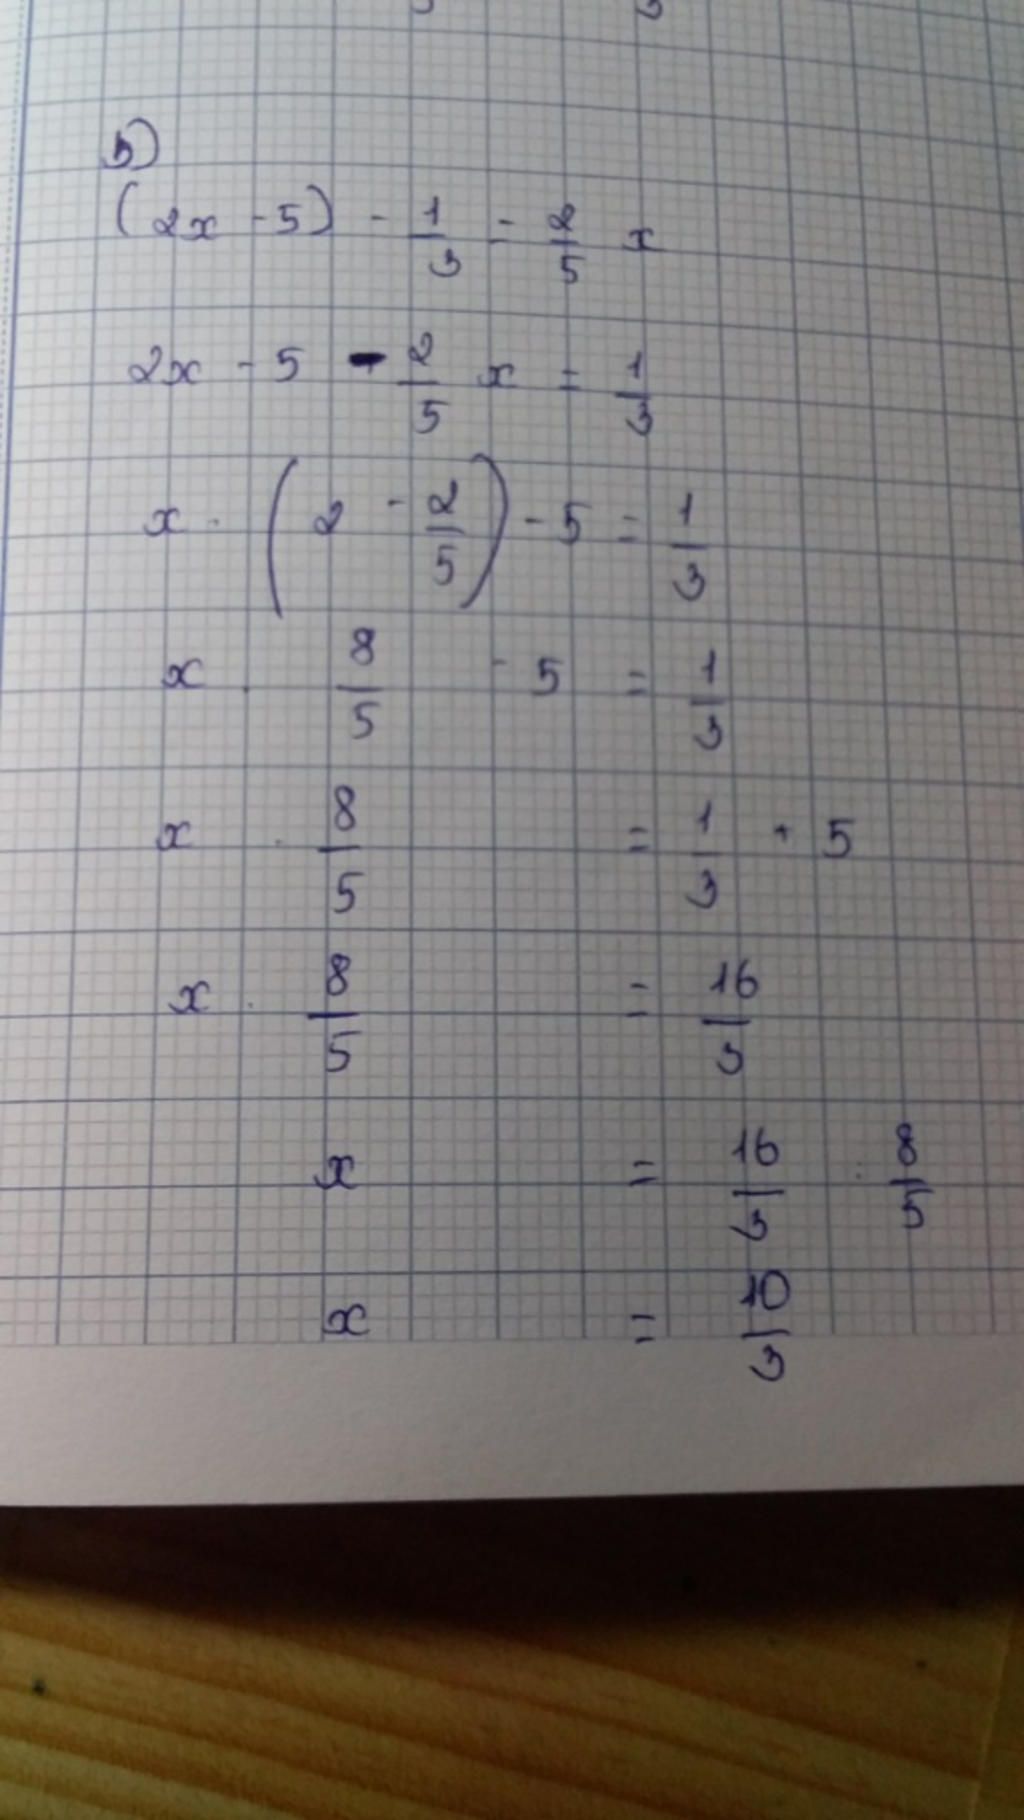 b)
(2x - 5) - 1/3 = 2/5 x
2x - 5 - 2/5 x = 1/3
x . (2 - 2/5) - 5 = 1/3
x . 8/5 - 5 = 1/3
x . 8/5 = 1/3 + 5
x . 8/5 = 16/3
x = 16/3 : 8/5
x = 10/3